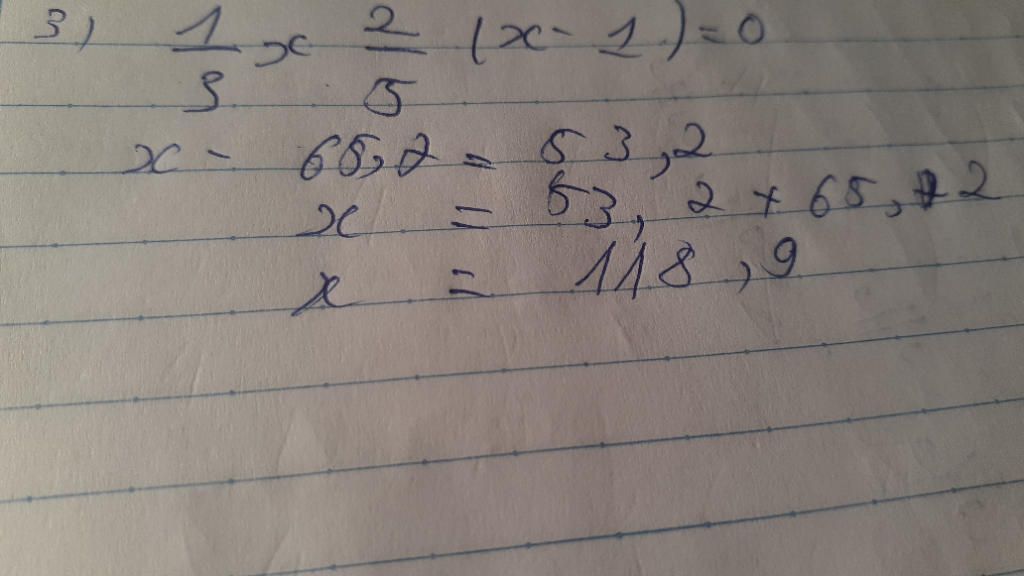 3) 1/3 x 2/5 (x - 1) = 0
x - 65,7 = 53,2
x = 53,2 + 65,72
x = 118,9